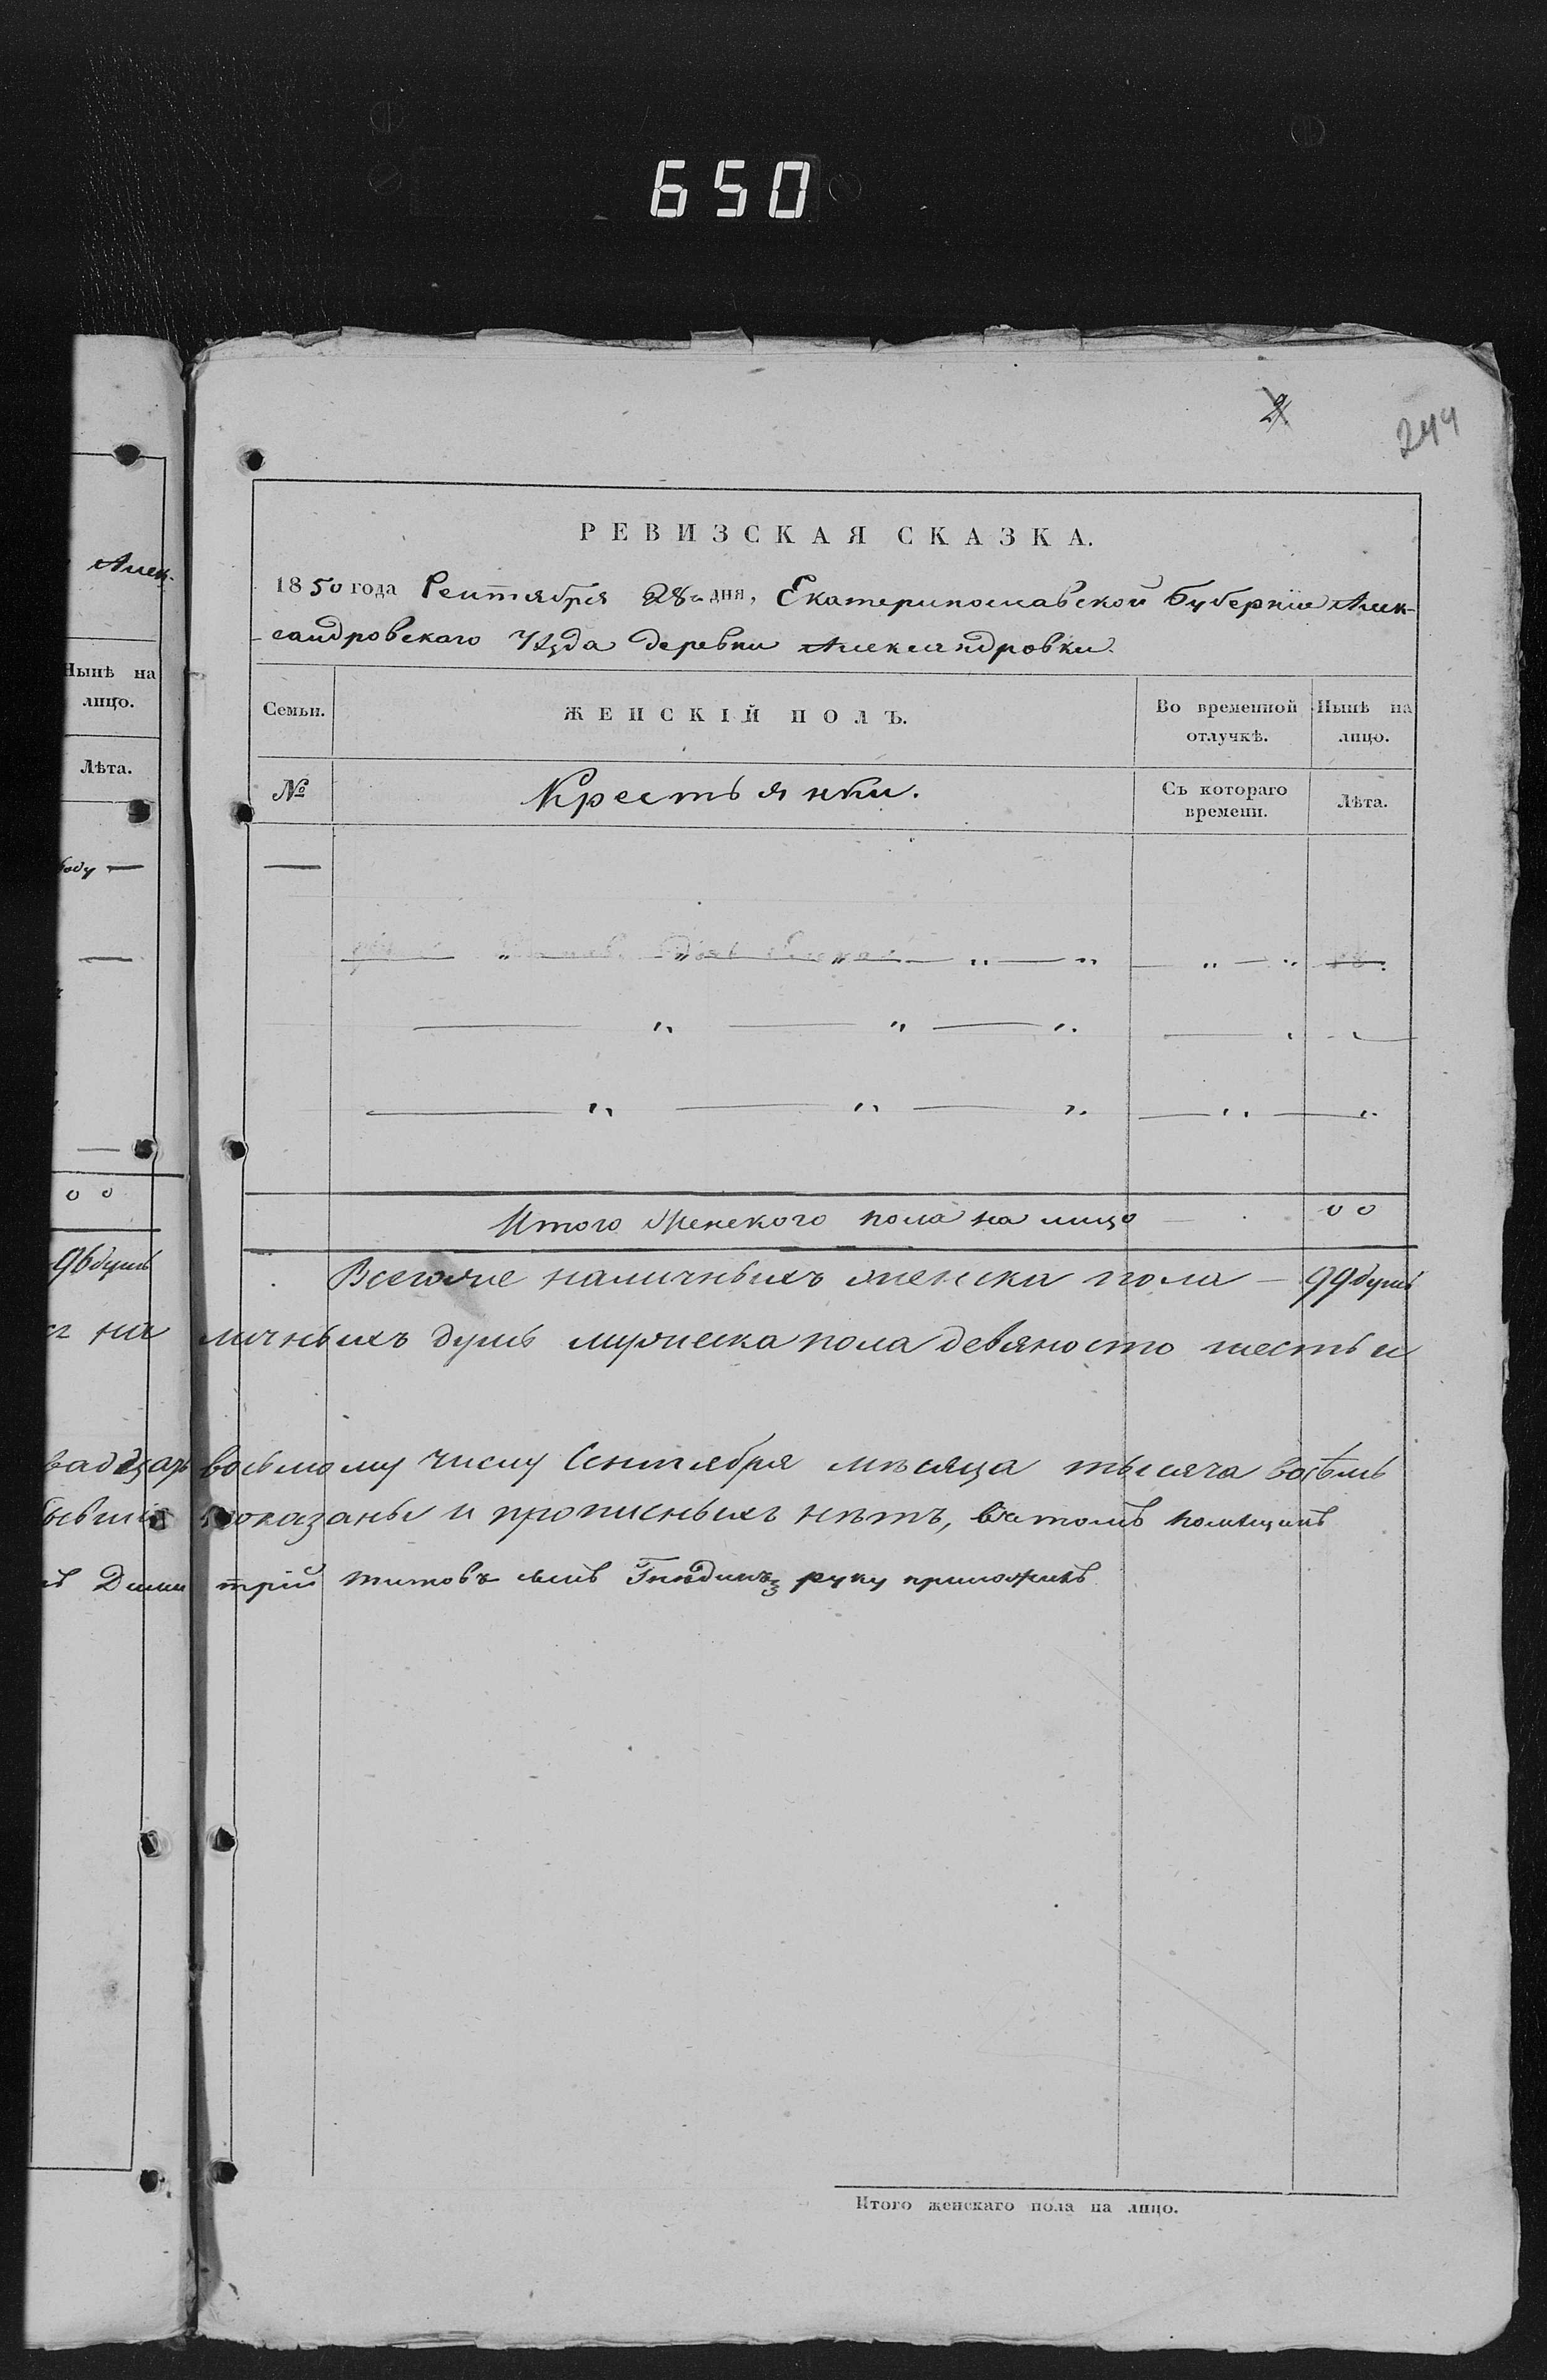 650
2
244
РЕВИЗСКАЯ СКАЗКА.
1850 года Сентября 28го дня, Екатеринославской Губерніи Алек-
сандровскаго Уѣзда деревни Александровки.
Алек-
Нынѣ на
лицо.
Лѣта.
Семьи.
ЖЕНСКІЙ ПОЛЪ.
Во временной
отлучкѣ.
Нынѣ на
лицо.
№
Крестьянки.
Съ котораго
времени.
Лѣта.
году —
00
Итого женского пола на лицо — 00
96 душъ
Всегоже наличныхъ женска пола — 99 душъ
на личныхъ душъ мужеска пола девяносто шесть и
восьмому числу Сентября мѣсяца тысяча восемь
показаны и прописныхъ нѣтъ, въ томъ помѣщикъ
Дими трій Титовъ сынъ руку приложилъ
Итого женскаго пола на лицо.